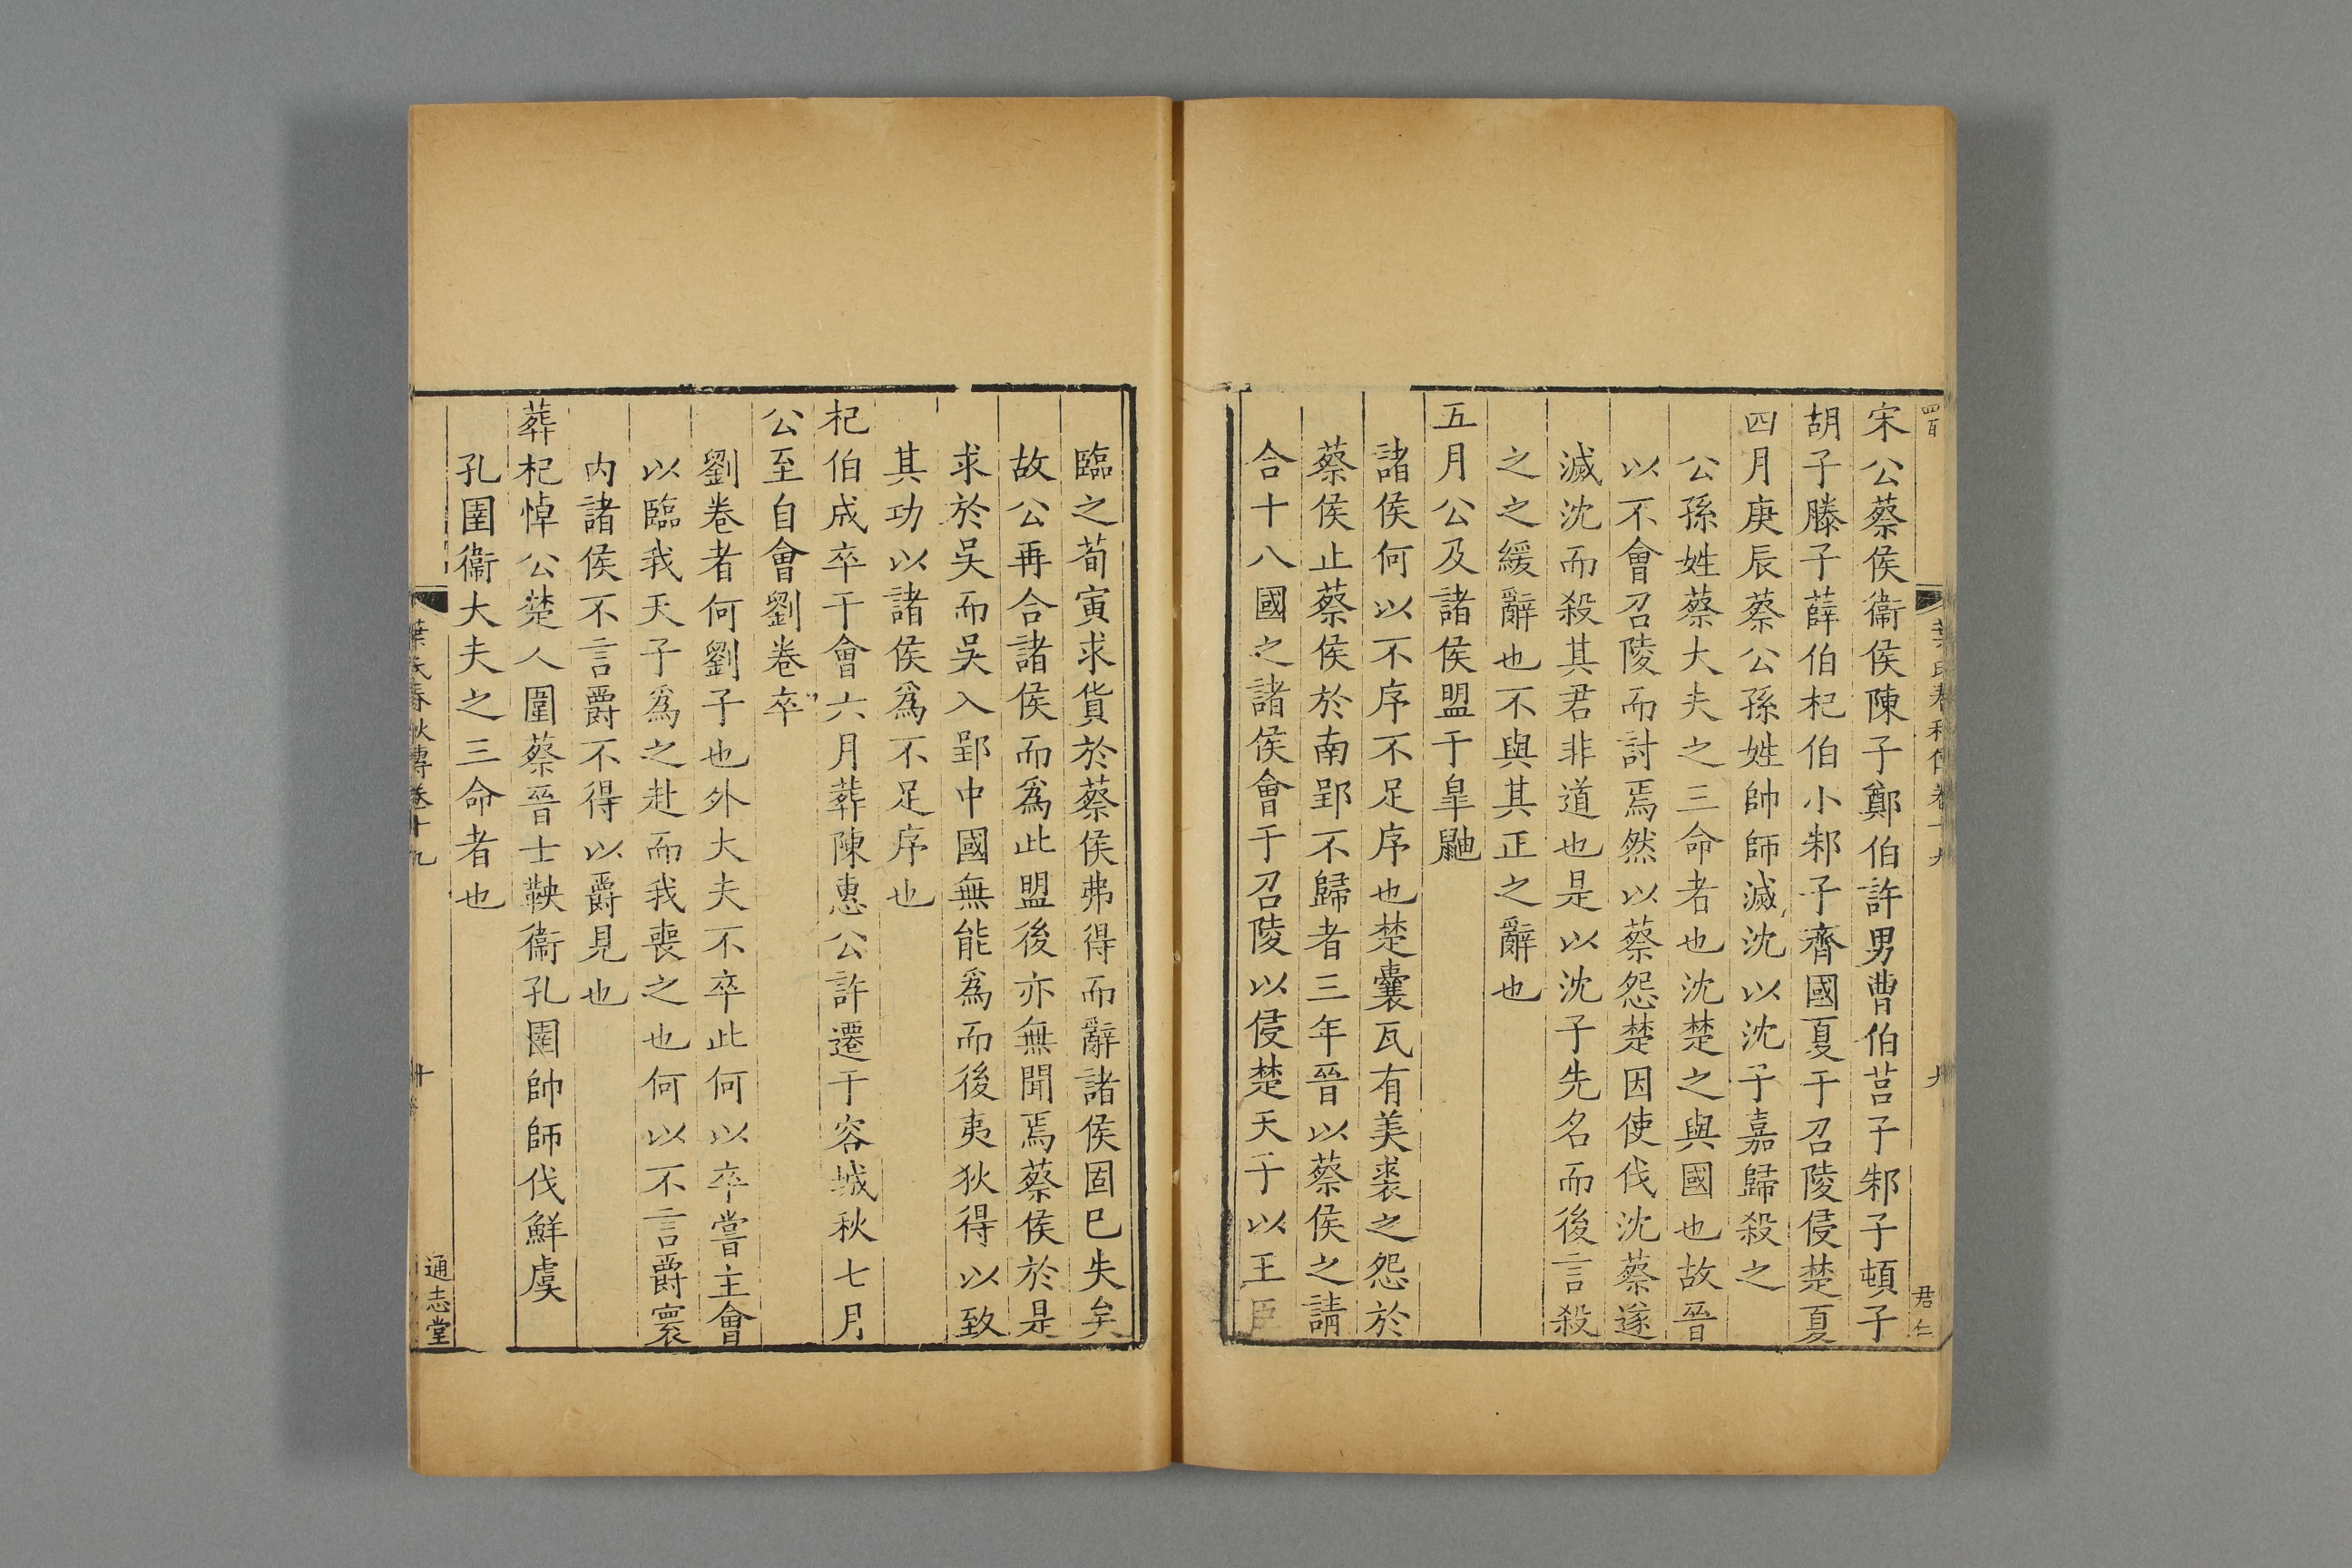 四百
葉氏春秋傳卷十九
九
君仁
宋公蔡侯衞侯陳子鄭伯許男曹伯莒子邾子頓子
胡子滕子薛伯杞伯小邾子齊國夏于召陵侵楚夏
四月庚辰蔡公孫姓帥師滅沈以沈子嘉歸殺之
公孫姓蔡大夫之三命者也沈楚之與國也故晉
以不會召陵而討焉然以蔡怨楚因使伐沈蔡遂
滅沈而殺其君非道也是以沈子先名而後言殺
之之緩辭也不與其正之辭也
五月公及諸侯盟于臯鼬
諸侯何以不序不足序也楚囊瓦有美裘之怨於
蔡侯止蔡侯於南郢不歸者三年晉以蔡侯之請
合十八國之諸侯會于召陵以侵楚天子以王臣
臨之荀寅求貨於蔡侯弗得而辭諸侯固已失矣
故公再合諸侯而爲此盟後亦無聞焉蔡侯於是
求於吳而吳入郢中國無能爲而後夷狄得以致
其功以諸侯爲不足序也
杞伯成卒于會六月葬陳惠公許遷于容城秋七月
公至自會劉卷卒
劉卷者何劉子也外大夫不卒此何以卒嘗主會
以臨我天子爲之赴而我喪之也何以不言爵寰
内諸侯不言爵不得以爵見也
葬杞悼公楚人圍蔡晉士鞅衞孔圉帥師伐鮮虞
孔圉衞大夫之三命者也
葉氏春秋傳卷十九
十
通志堂